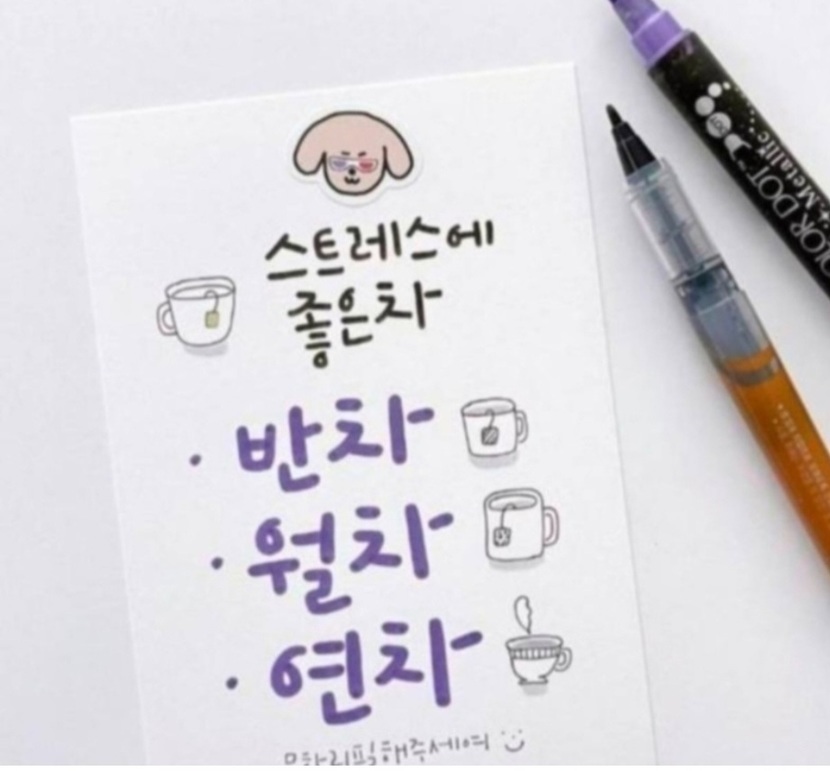 스트레스에
좋은차
· 반차
· 월차
· 연차
무한리필해주세여
COLOR DOT
Metallic
DOT